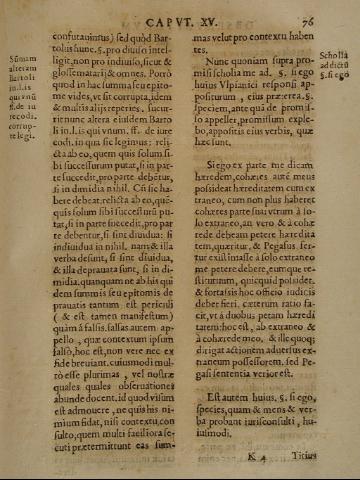 CAPVT. XV.
76
Sũmam
alteram
Bartoli
in.l. is
qui vnũ
ff. de iu
re codi.
corrup-
te legi.
confutauimus) sed quòd Bar-
tolus hunc. §. pro diuiso intel-
ligit, non pro indiuiso, sicut &
glossematarij & omnes. Porrò
quod in hac summa seu epito-
me vides, vt sit corrupta, idem
& multis alijs reperies. sicut
rit nunc altera eiusdem Bartoli
li in.l. is qui vnum. ff. de iure
codi. in qua sic legimus: reli-
cta ab eo, quem quis solum si-
bi successurum putat, si in par-
te succedit, pro parte debetur,
si in dimidia nihil. Cũ sic ha-
bere debeat: relicta ab eo, què-
quis solum sibi successurũ pu-
tat, si in parte succedit, pro par
te debentur, si sint diuidua: si
indiuidua in nihil. nam & illa
verba desunt, si sint diuidua,
& illa deprauata sunt, si in di-
midia. quanquam ne ab his qui
dem summis seu epitomis de
prauatis tantum est periculi
( & est tamen manifestum)
quàm à falsis. falsas autem ap-
pello, quæ contextum ipsum
falsò, hoc est, non vere nec ex
fide breuiant. cuiusmodi mul-
tò esse plurimas, vel nostræ
quales quales obseruationes
abunde docent. id quod visum
est admouere, ne quis his ni-
mium fidat, nisi contextu, con
sulto, quem multi faciliora se-
cuti prætermittunt eas sum-
mas velut pro contextu haben
tes.
Nunc quoniam supra pro-
misi scholia me ad. §. si ego
huius Vlpianici responsi ap-
positurum, eius præterea. §.
speciem, ante quã de promis-
so appeller, promissum exple-
bo, appositis eius verbis, quæ
hæc sunt.
Scholia
ad dictũ
§. si ego
Si ego ex parte me dicam
hæredem, cohæres autẽ meus
possideat hæreditatem cum ex
traneo, cum non plus haberet
cohæres parte sua: vtrum à so-
lo extraneo, an vero & à cohæ
rede debeam petere hæredita
tem, quæritur, & Pegasus, fer-
tur existimasse à solo extraneo
me petere debere, eumque re-
stituturum, quicquid possidet,
& fortassis hoc officio iudicis
debet fieri. cæterum ratio fa-
cit, vt à duobus petam hæredi
tatem: hoc est, ab extraneo &
à cohærede meo, & ille quoq;
dirigat actionem aduersus ex-
traneum possessorem, sed Pe-
gasi sententia verior est.
Est autem huius. §. si ego,
species, quam & mens & ver-
ba probant iurisconsulti, hu-
iusmodi.
K 4
Titius